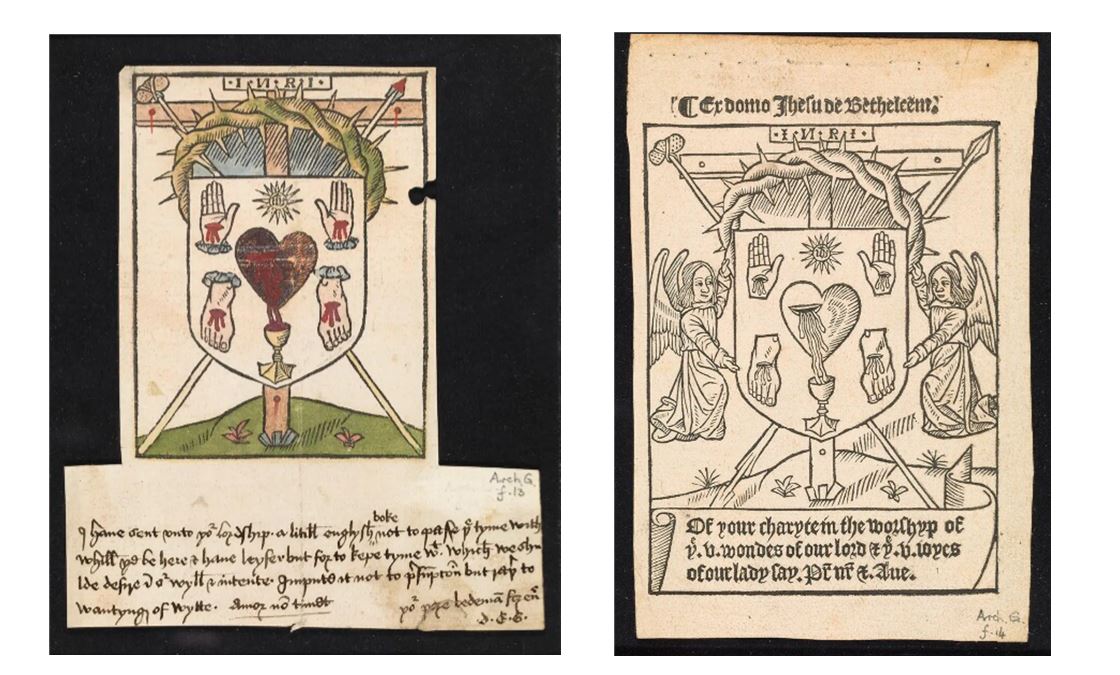 ·I·N·R·I·
Arch. G.
f. 13
boke
I haue sent vnto yor lordship a litill englysh not to passe ye tyme with
whill ye be here & haue leyser but for to kepe tyme wt. which we shu
lde desire i or wyll & intente. Impute it not to but to
wantyng of wytte. Amor nō timet
yor pore bedemā
D. E. G.
¶ Ex domo Jhesu de Bethelēem.
·I·N·R·I·
Of your charyte in the worshyp of
yͤ. v. wondes of our lord & yͤ. v. ioyes
of our lady say. Pr̄ nr̄ &. Aue.
Arch. G.
f. 14